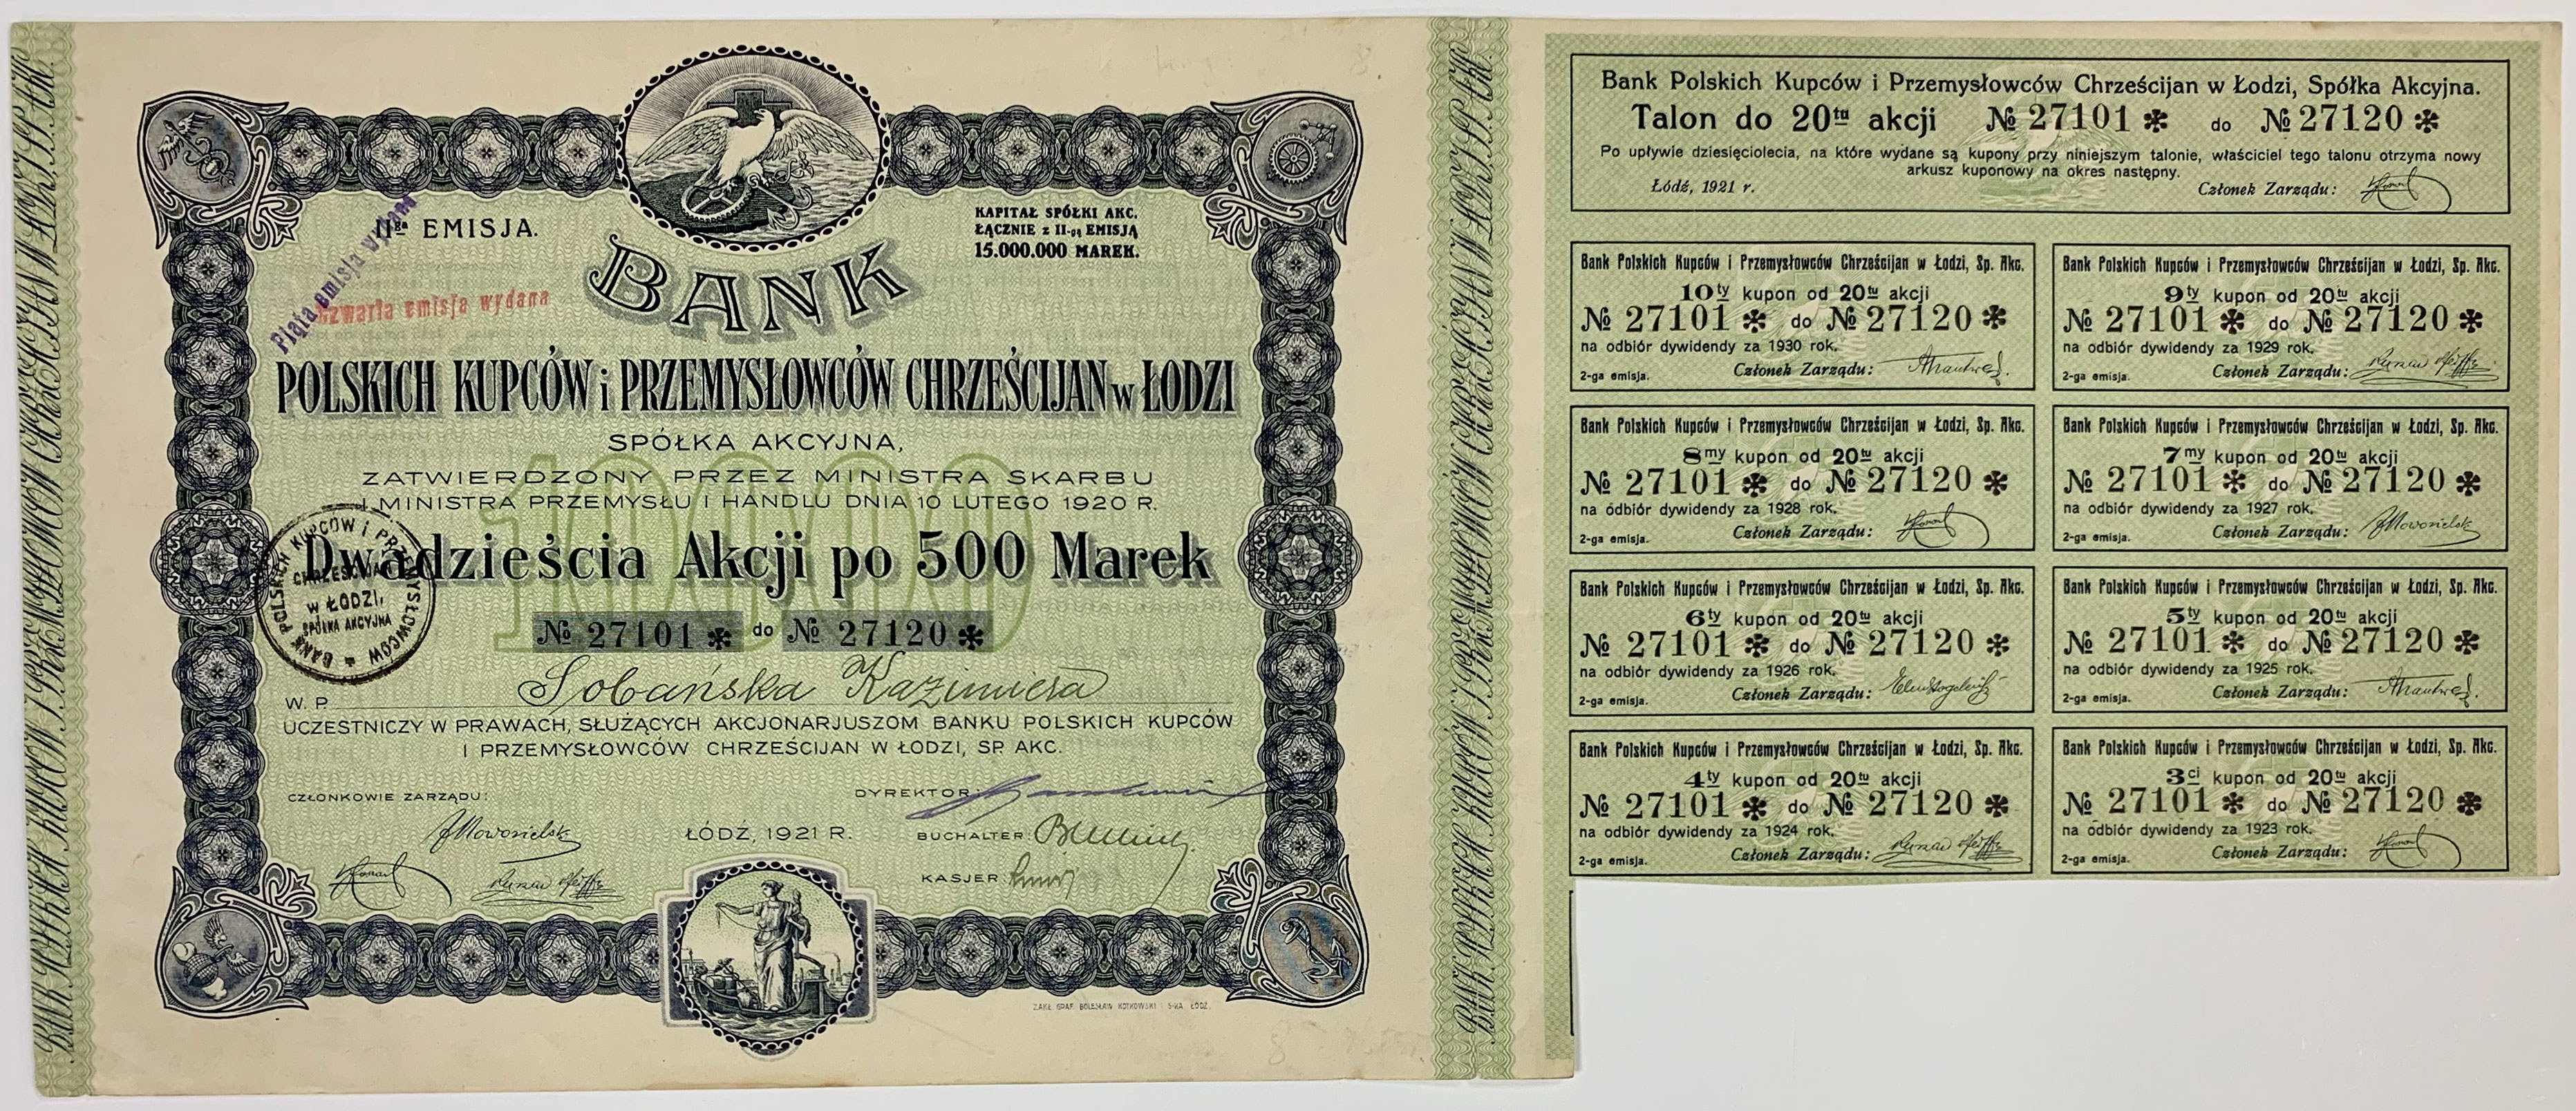 BANK POLSKICH KUPCÓW I PRZEMYSŁOWCÓW CHRZEŚCIJAN W ŁODZI SP. AKC.
IIga EMISJA.
KAPITAŁ SPÓŁKI AKC.
ŁĄCZNIE z II-gą EMISJĄ
15.000.000 MAREK.
Piąta emisja wydana
Czwarta emisja wydana
BANK
POLSKICH KUPCÓW i PRZEMYSŁOWCÓW CHRZEŚCIJAN w ŁODZI
SPÓŁKA AKCYJNA,
ZATWIERDZONY PRZEZ MINISTRA SKARBU
I MINISTRA PRZEMYSŁU I HANDLU DNIA 10 LUTEGO 1920 R.
10000
Dwadzieścia Akcji po 500 Marek
BANK POLSKICH KUPCÓW i PRZEMYSŁOWCÓW
CHRZEŚCIJAN
w ŁODZI,
SPÓŁKA AKCYJNA
№ 27101 * do № 27120 *
W. P. Sobańska Kazimiera
UCZESTNICZY W PRAWACH, SŁUŻĄCYCH AKCJONARJUSZOM BANKU POLSKICH KUPCÓW
I PRZEMYSŁOWCÓW CHRZEŚCIJAN W ŁODZI, SP. AKC.
CZŁONKOWIE ZARZĄDU:
DYREKTOR:
ŁÓDŹ, 1921 R.
BUCHALTER:
KASJER:
ZAKŁ. GRAF. BOLESŁAW KOTKOWSKI i S-KA, ŁÓDŹ.
BANK POLSKICH KUPCÓW I PRZEMYSŁOWCÓW CHRZEŚCIJAN W ŁODZI SP. AKC.
Bank Polskich Kupców i Przemysłowców Chrześcijan w Łodzi, Spółka Akcyjna.
Talon do 20tu akcji № 27101 * do № 27120 *
Po upływie dziesięciolecia, na które wydane są kupony przy niniejszym talonie, właściciel tego talonu otrzyma nowy
arkusz kuponowy na okres następny.
Łódź, 1921 r. Członek Zarządu:
Bank Polskich Kupców i Przemysłowców Chrześcijan w Łodzi, Sp. Akc.
10ty kupon od 20tu akcji
№ 27101 * do № 27120 *
na odbiór dywidendy za 1930 rok.
2-ga emisja. Członek Zarządu:
Bank Polskich Kupców i Przemysłowców Chrześcijan w Łodzi, Sp. Akc.
9ty kupon od 20tu akcji
№ 27101 * do № 27120 *
na odbiór dywidendy za 1929 rok.
2-ga emisja. Członek Zarządu:
Bank Polskich Kupców i Przemysłowców Chrześcijan w Łodzi, Sp. Akc.
8my kupon od 20tu akcji
№ 27101 * do № 27120 *
na odbiór dywidendy za 1928 rok.
2-ga emisja. Członek Zarządu:
Bank Polskich Kupców i Przemysłowców Chrześcijan w Łodzi, Sp. Akc.
7my kupon od 20tu akcji
№ 27101 * do № 27120 *
na odbiór dywidendy za 1927 rok.
2-ga emisja. Członek Zarządu:
Bank Polskich Kupców i Przemysłowców Chrześcijan w Łodzi, Sp. Akc.
6ty kupon od 20tu akcji
№ 27101 * do № 27120 *
na odbiór dywidendy za 1926 rok.
2-ga emisja. Członek Zarządu:
Bank Polskich Kupców i Przemysłowców Chrześcijan w Łodzi, Sp. Akc.
5ty kupon od 20tu akcji
№ 27101 * do № 27120 *
na odbiór dywidendy za 1925 rok.
2-ga emisja. Członek Zarządu:
Bank Polskich Kupców i Przemysłowców Chrześcijan w Łodzi, Sp. Akc.
4ty kupon od 20tu akcji
№ 27101 * do № 27120 *
na odbiór dywidendy za 1924 rok.
2-ga emisja. Członek Zarządu:
Bank Polskich Kupców i Przemysłowców Chrześcijan w Łodzi, Sp. Akc.
3ci kupon od 20tu akcji
№ 27101 * do № 27120 *
na odbiór dywidendy za 1923 rok.
2-ga emisja. Członek Zarządu: